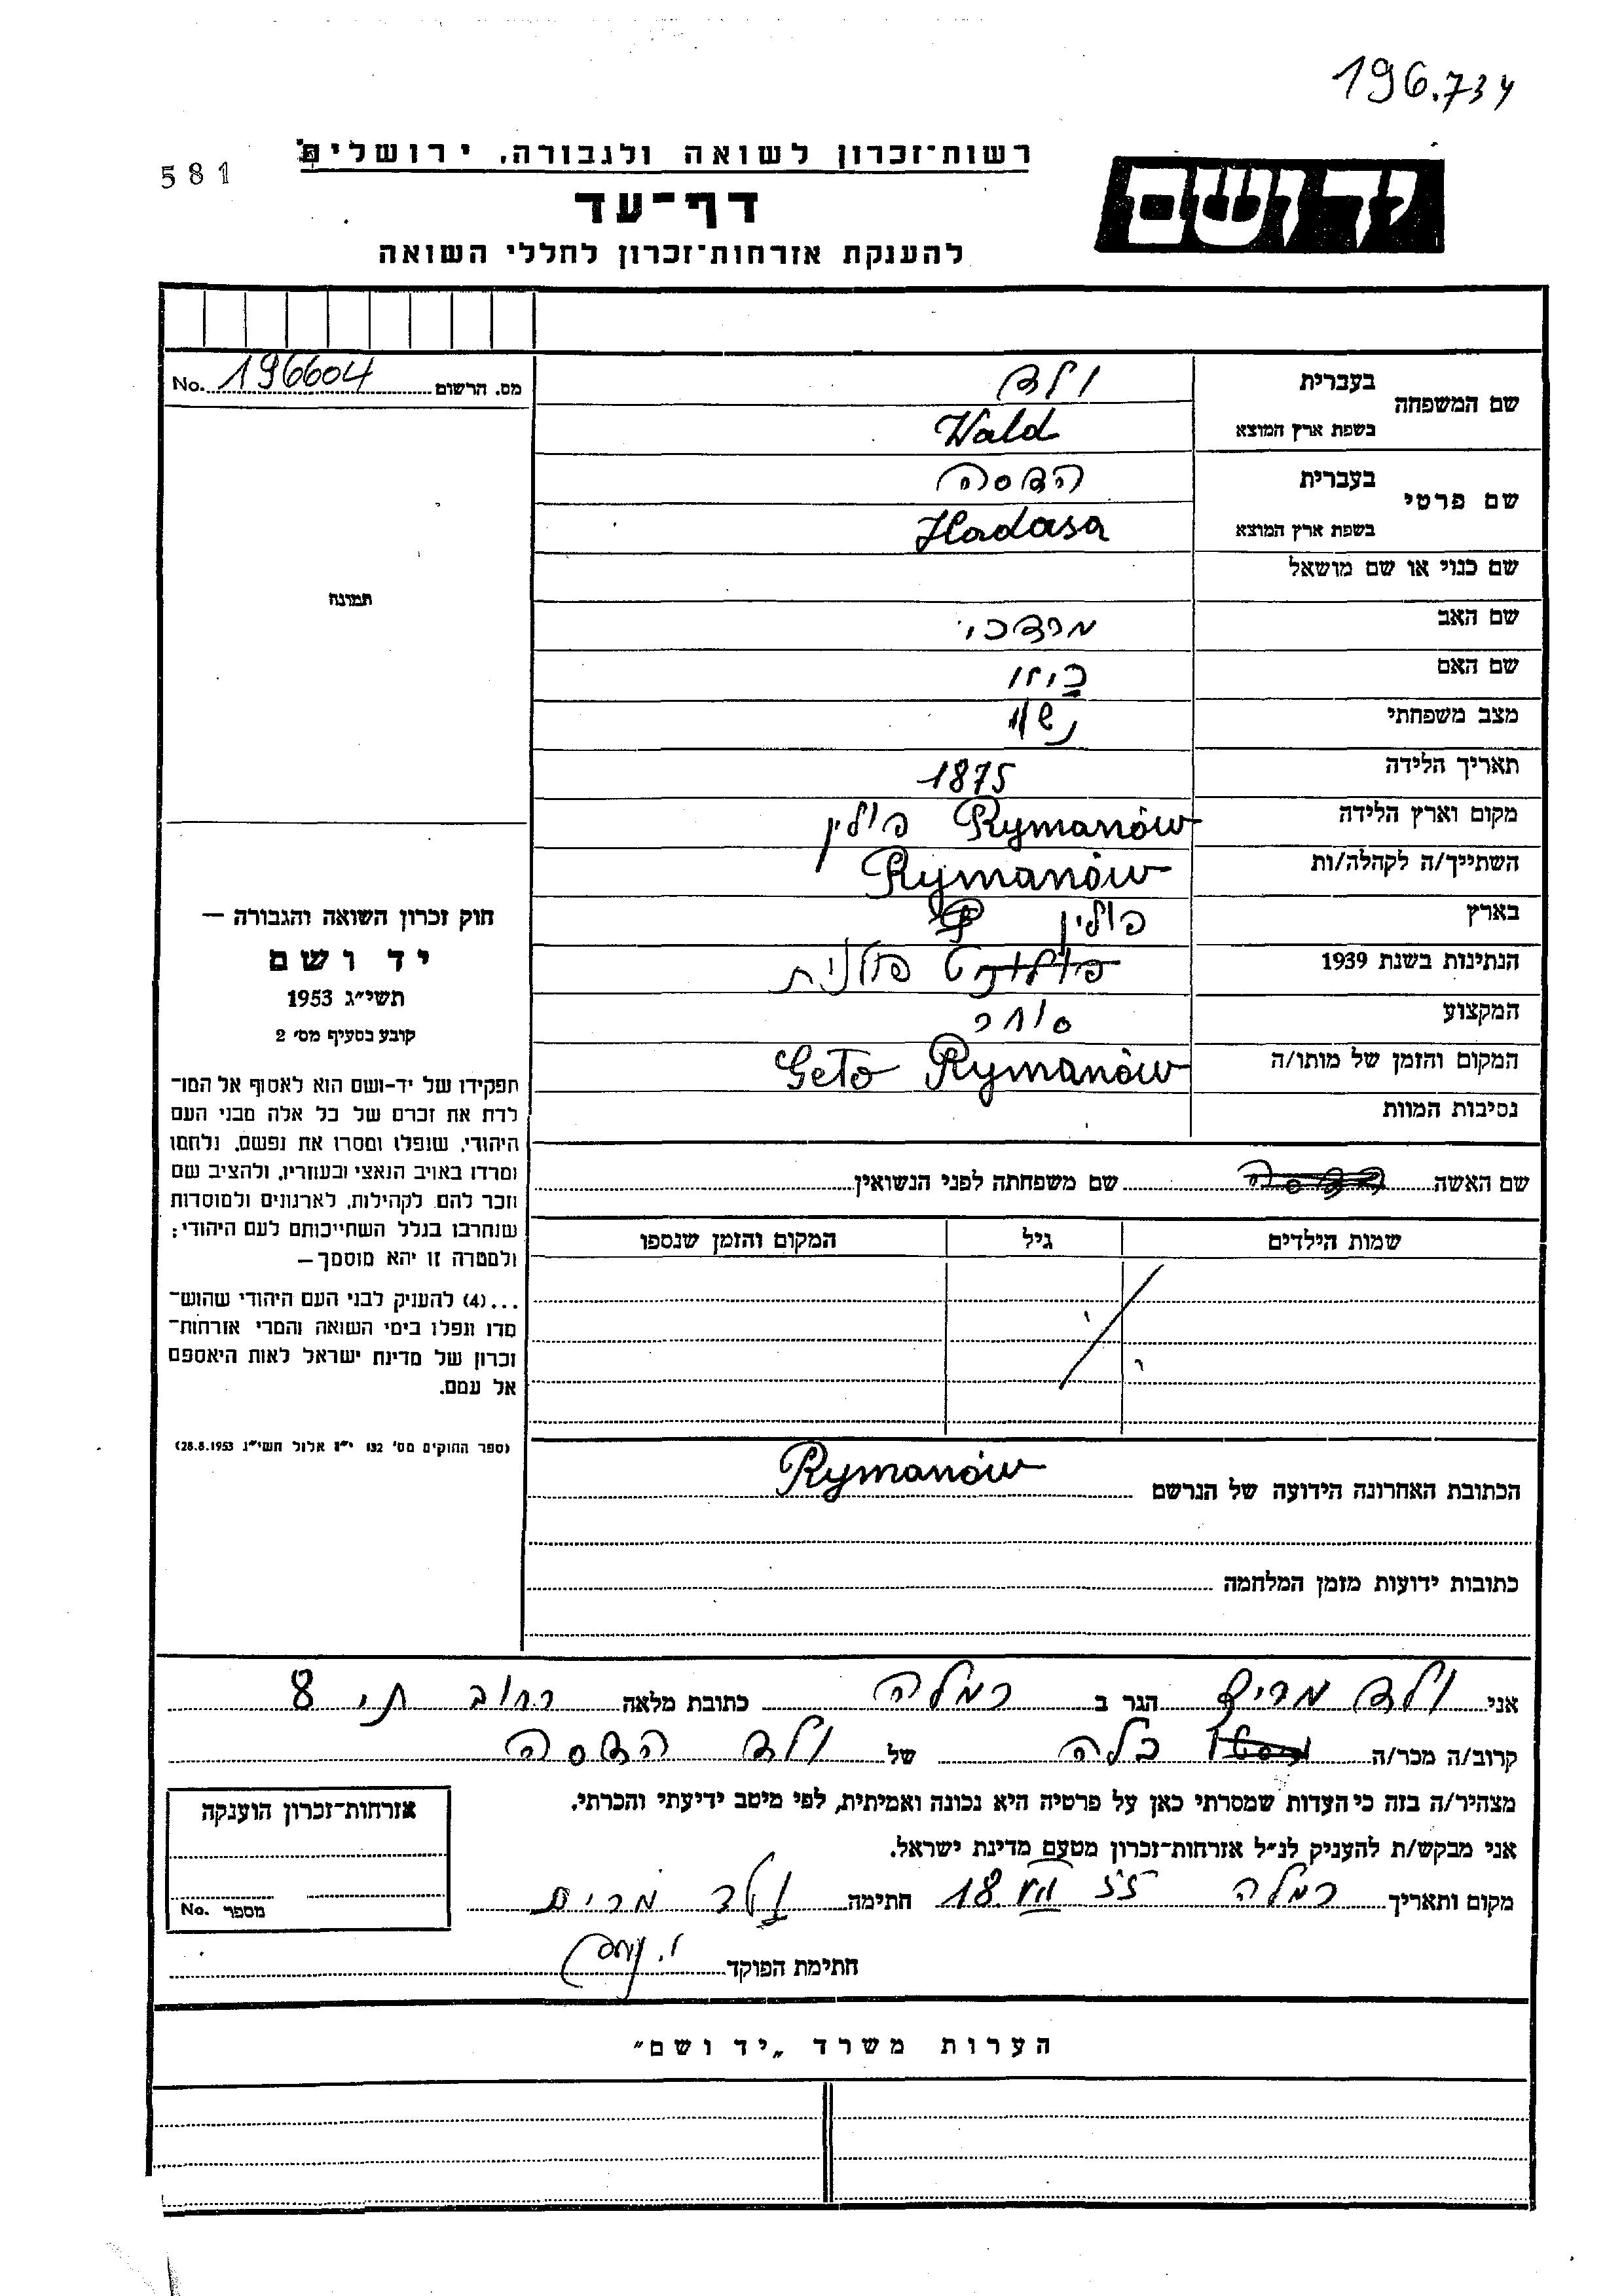 196.734
581
רשות־זכרון לשואה ולגבורה, ירושלים
יד ושם
דף־עד
להענקת אזרחות־זכרון לחללי השואה
מס. הרשום 196604 No.
שם המשפחה
בעברית ולד
בשפת ארץ המוצא Wald
שם פרטי
בעברית הדסה
בשפת ארץ המוצא Hadasa
שם כנוי או שם מושאל
שם האב מרדכי
שם האם
מצב משפחתי
תאריך הלידה 1875
מקום וארץ הלידה Rymanów פולין
השתייך/ה לקהלה/ות Rymanów
בארץ פולין
הנתינות בשנת 1939 פולנית
המקצוע סוחר
המקום והזמן של מותו/ה Geto Rymanów
נסיבות המוות
שם האשה שם משפחתה לפני הנשואין
שמות הילדים גיל המקום והזמן שנספו
הכתובת האחרונה הידועה של הנרשם Rymanów
כתובות ידועות מזמן המלחמה
תמונה
חוק זכרון השואה והגבורה —
יד ושם
תשי״ג 1953
קובע בסעיף מס׳ 2
תפקידו של יד-ושם הוא לאסוף אל המו־
לדת את זכרם של כל אלה מבני העם
היהודי, שנפלו ומסרו את נפשם, נלחמו
ומרדו באויב הנאצי ובעוזריו, ולהציב שם
וזכר להם, לקהילות, לארגונים ולמוסדות
שנחרבו בגלל השתייכותם לעם היהודי;
ולמטרה זו יהא מוסמך —
...(4) להעניק לבני העם היהודי שהוש־
מדו ונפלו בימי השואה והמרי אזרחות־
זכרון של מדינת ישראל לאות היאספם
אל עמם.
(ספר החוקים מס׳ 132 י״ז אלול תשי״ג 28.8.1953)
אני ולד מרים הגר ב רמלה כתובת מלאה רחוב תי 8
קרוב/ה מכר/ה כלה של ולד הדסה
מצהיר/ה בזה כי העדות שמסרתי כאן על פרטיה היא נכונה ואמיתית, לפי מיטב ידיעתי והכרתי.
אני מבקש/ת להעניק לנ״ל אזרחות־זכרון מטעם מדינת ישראל.
מקום ותאריך רמלה 18. VII 55 חתימה ולד מרים
חתימת הפוקד
אזרחות־זכרון הוענקה
מספר No.
הערות משרד „יד ושם״